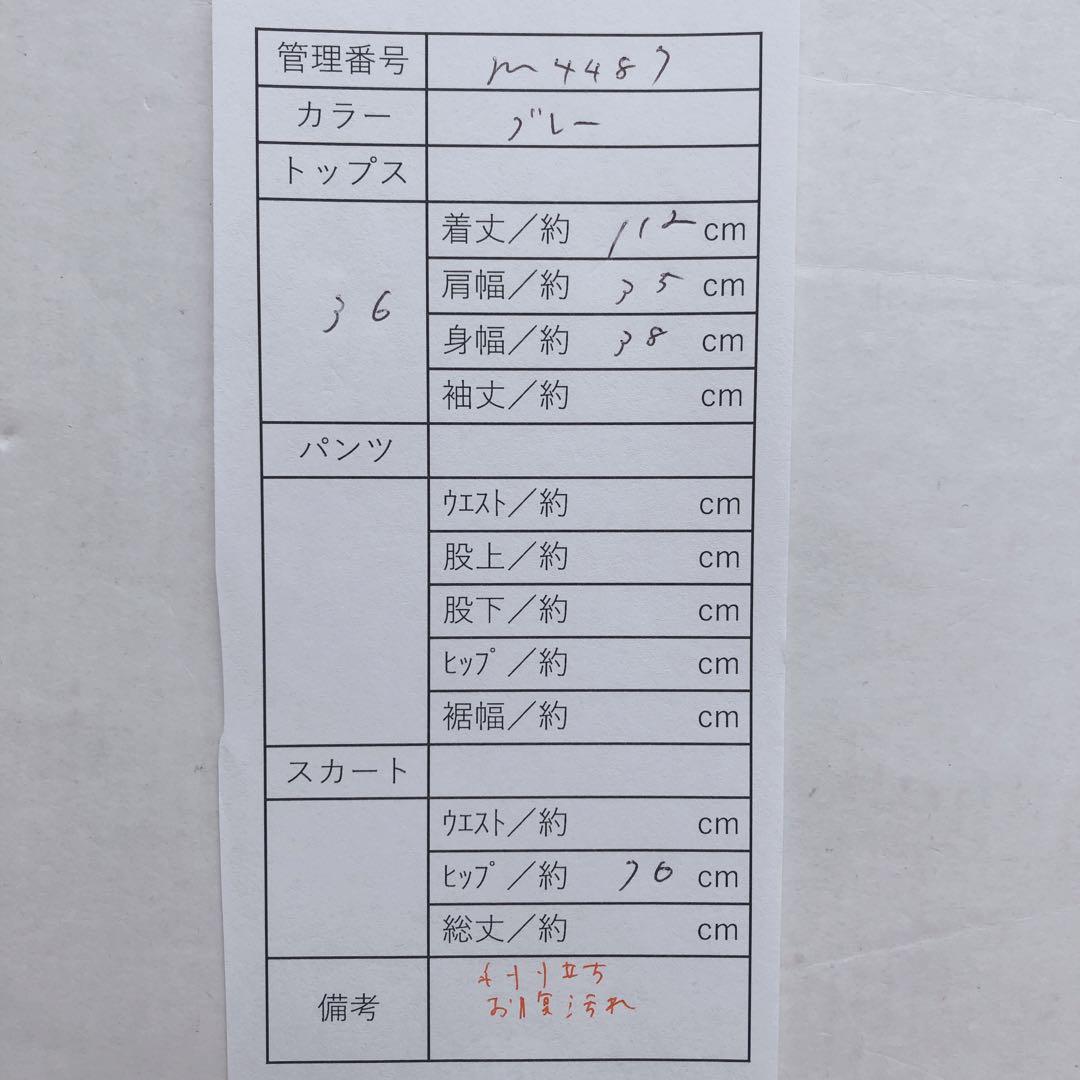 管理番号 m4487
カラー グレー
トップス
36
着丈／約 112 cm
肩幅／約 35 cm
身幅／約 38 cm
袖丈／約 cm
パンツ
ウエスト／約 cm
股上／約 cm
股下／約 cm
ヒップ／約 cm
裾幅／約 cm
スカート
ウエスト／約 cm
ヒップ／約 76 cm
総丈／約 cm
備考
立ち
お腹汚れ